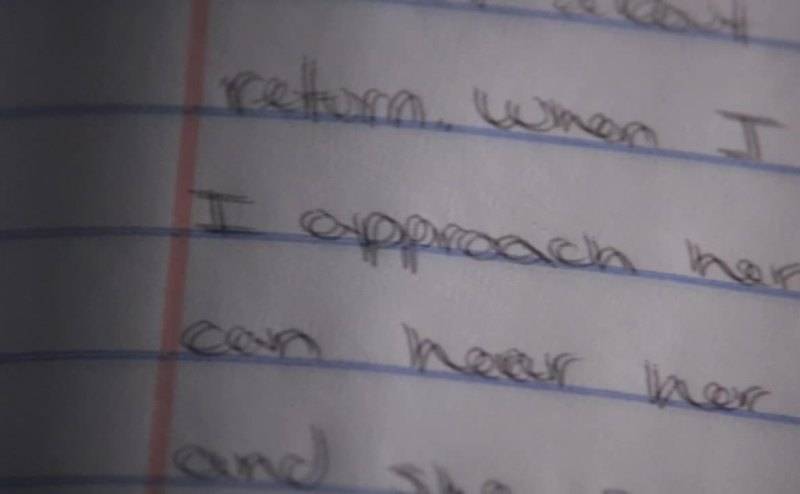 return. When I
I approach her
can hear her
and she